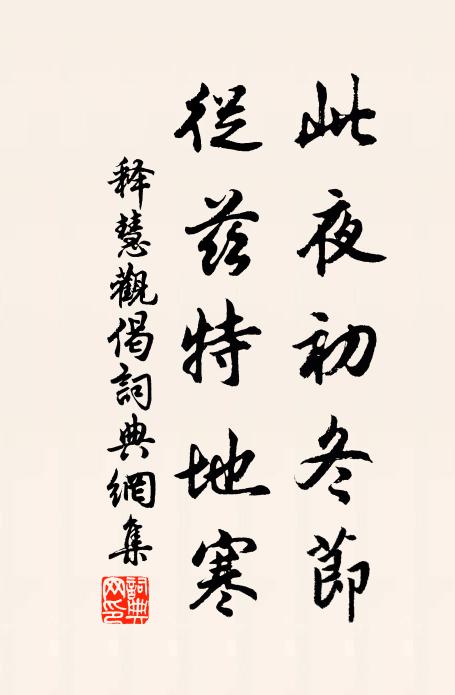 此夜初冬節
從茲特地寒
释慧觀偈詞典網集
詞典网印